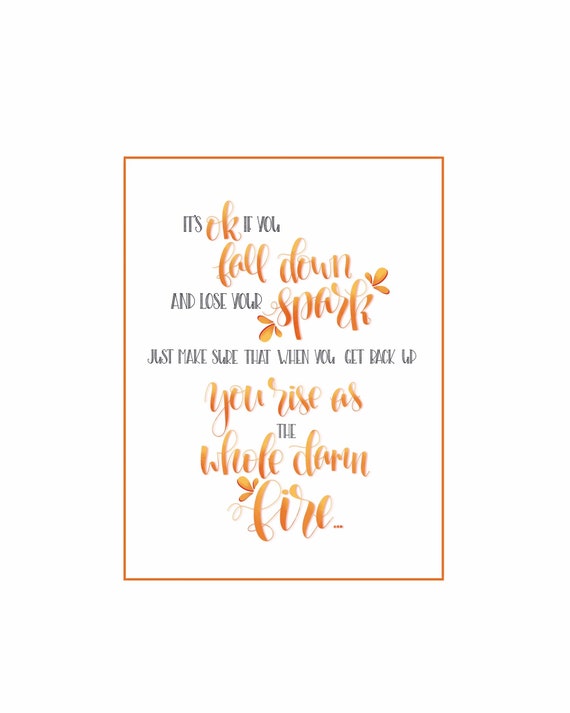 IT'S ok IF YOU
fall down
AND LOSE YOUR spark
JUST MAKE SURE THAT WHEN YOU GET BACK UP
you rise as
THE
whole damn
fire...